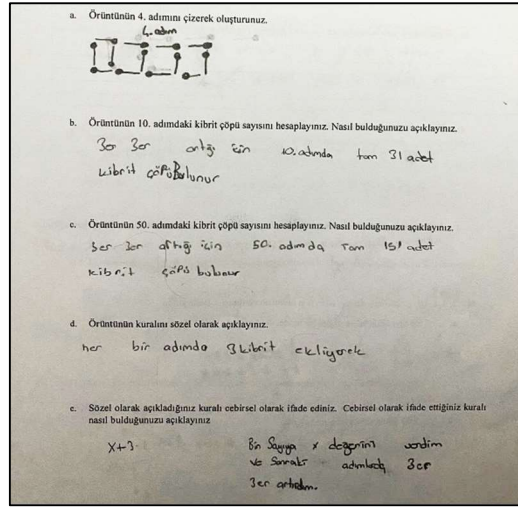 a. Örüntünün 4. adımını çizerek oluşturunuz.
4. adım
b. Örüntünün 10. adımdaki kibrit çöpü sayısını hesaplayınız. Nasıl bulduğunuzu açıklayınız.
3er 3er arttığı için 10. adımda tam 31 adet
kibrit çöpü Bulunur
c. Örüntünün 50. adımdaki kibrit çöpü sayısını hesaplayınız. Nasıl bulduğunuzu açıklayınız.
3er 3er arttığı için 50. adımda tam 151 adet
kibrit çöpü bulunur
d. Örüntünün kuralını sözel olarak açıklayınız.
her bir adımda 3 kibrit ekliyerek
e. Sözel olarak açıkladığınız kuralı cebirsel olarak ifade ediniz. Cebirsel olarak ifade ettiğiniz kuralı
nasıl bulduğunuzu açıklayınız
x+3 Bir Sayıya x değerini verdim
ve Sonraki adımlarda 3er
3er artırdım.